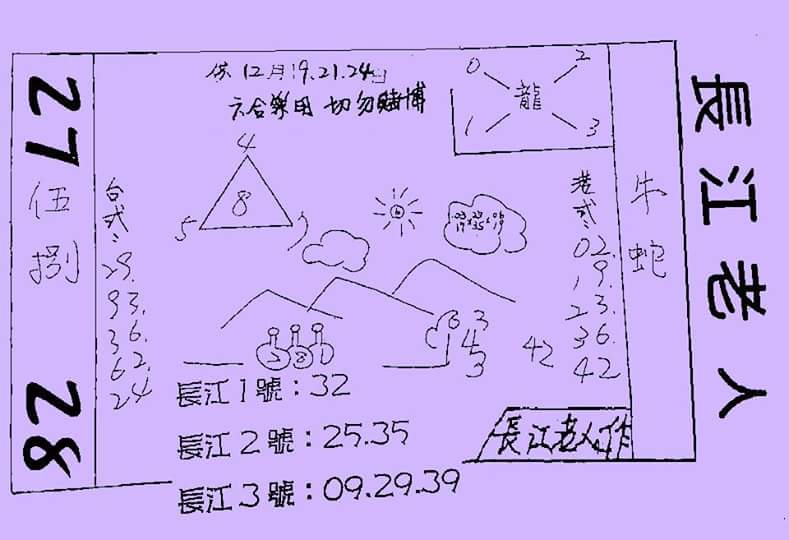 12月19.21.24日
六合樂用 切勿賭博
0 2
龍
1 3
27
伍
捌
28
台式:
29.
93.
36.
62.
24
4
8
5
港式:
02.
19.
23.
36.
42
牛
蛇
6 3
4
3
42
長江1號:32
長江2號:25.35
長江3號:09.29.39
長江老人作
長江老人